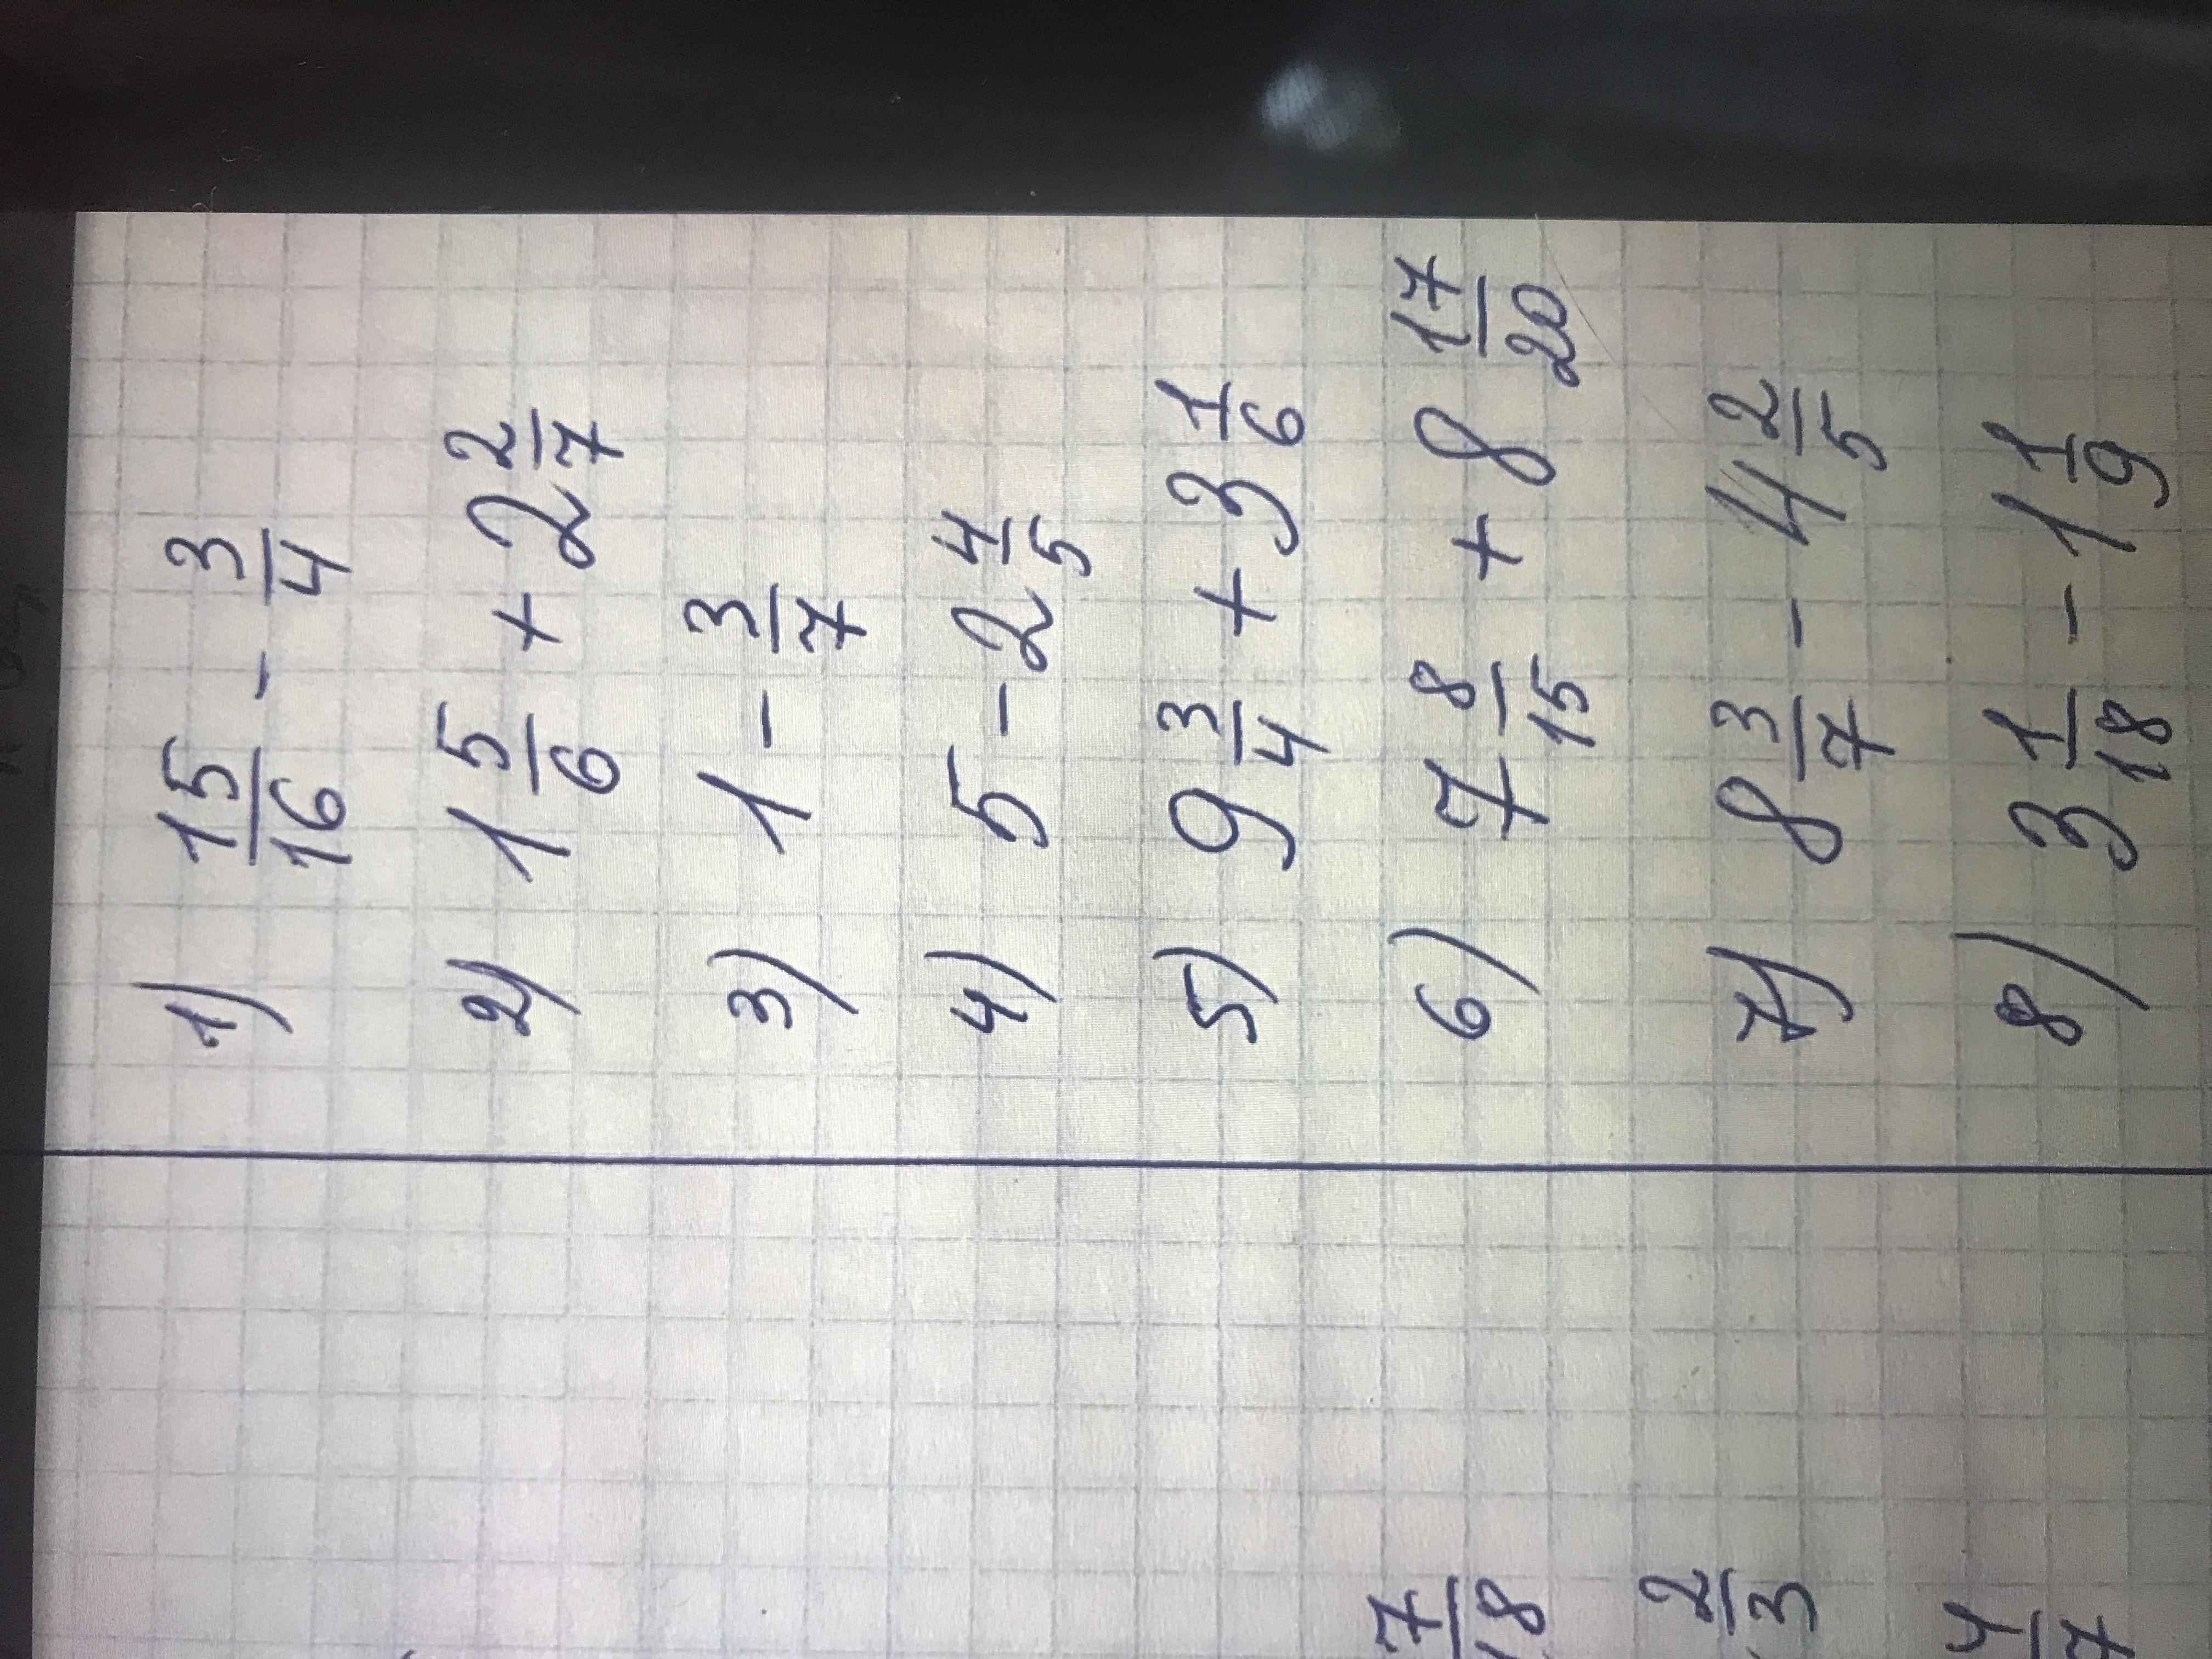 1) 15/16 - 3/4
2) 1 5/6 + 2 2/7
3) 1 - 3/7
4) 5 - 2 4/5
5) 9 3/4 + 3 1/6
6) 7 8/15 + 8 17/20
7) 8 3/7 - 4 2/5
8) 3 1/18 - 1 1/9
7/18
2/3